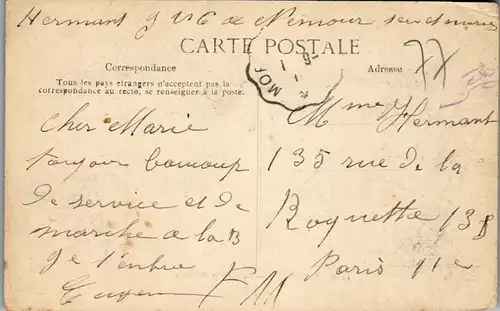 Hermant J V6 de Nemour
CARTE POSTALE
Correspondance
Tous les pays étrangers n'acceptent pas la
correspondance au recto, se renseigner à la poste.
Cher Marie
toujour baucoup
de service et de
marche a la B
Je t'enbre
Eugen
F 11
Adresse
77
MOR
Mme Hermant
135 rue de la
Roquette 135
Paris 11e